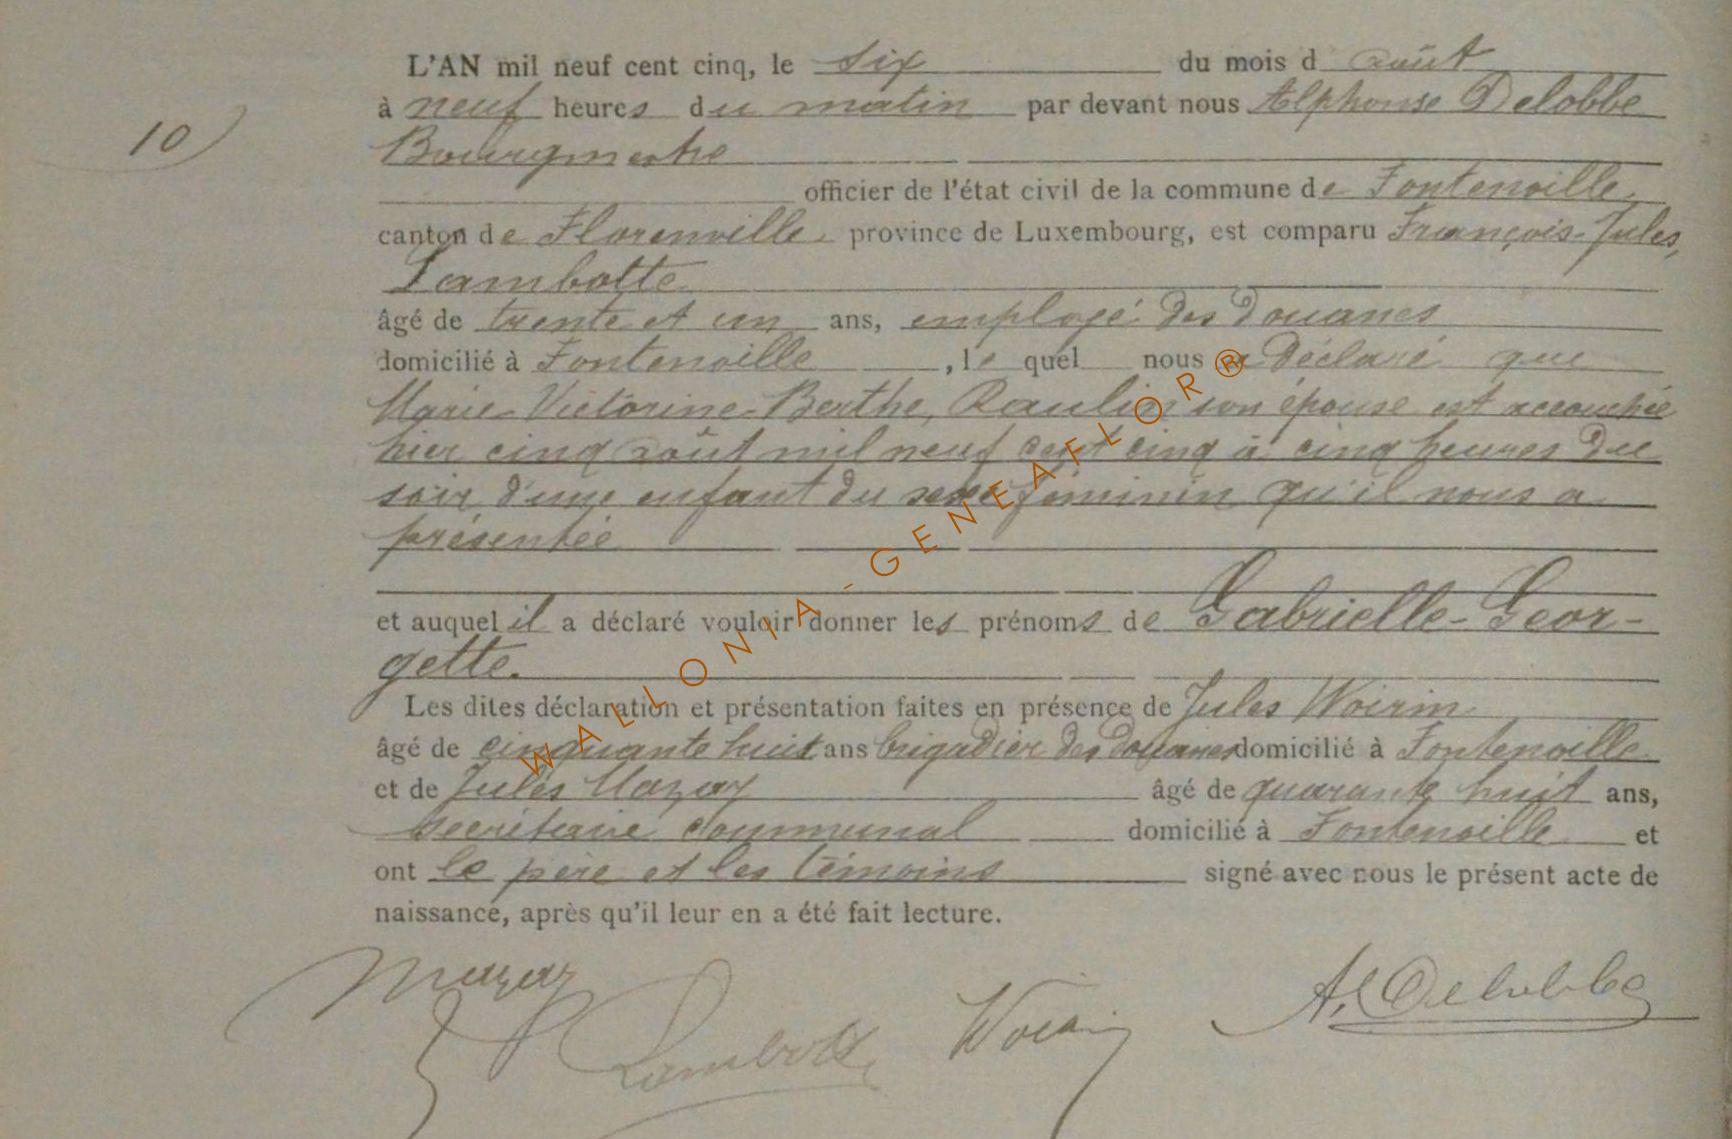 L'AN mil neuf cent cinq, le six du mois d août
à neuf heures du matin par devant nous Alphonse Delobbe
10
Bourgmestre
officier de l'état civil de la commune de Fontenoille,
canton de Florenville, province de Luxembourg, est comparu François-Jules,
Lambotte
âgé de trente et un ans, employé des Douanes
domicilié à Fontenoille, le quel nous a déclaré que
Marie-Victorine-Berthe, Raulin son épouse est accouchée
hier cinq août mil neuf cent cinq à cinq heures du
soir d'une enfant du sexe féminin qu'il nous a
présentée
et auquel il a déclaré vouloir donner les prénoms de Gabrielle-Geor-
gette.
Les dites déclaration et présentation faites en présence de Jules Woirin
âgé de cinquante huit ans brigadier des douanes domicilié à Fontenoille
et de Jules Mazay âgé de quarante huit ans,
secrétaire communal domicilié à Fontenoille et
ont le père et les témoins signé avec nous le présent acte de
naissance, après qu'il leur en a été fait lecture.
Mazay
Lambotte
Woirin
A. Delobbe
WALLONIA-GENEAFLOR®